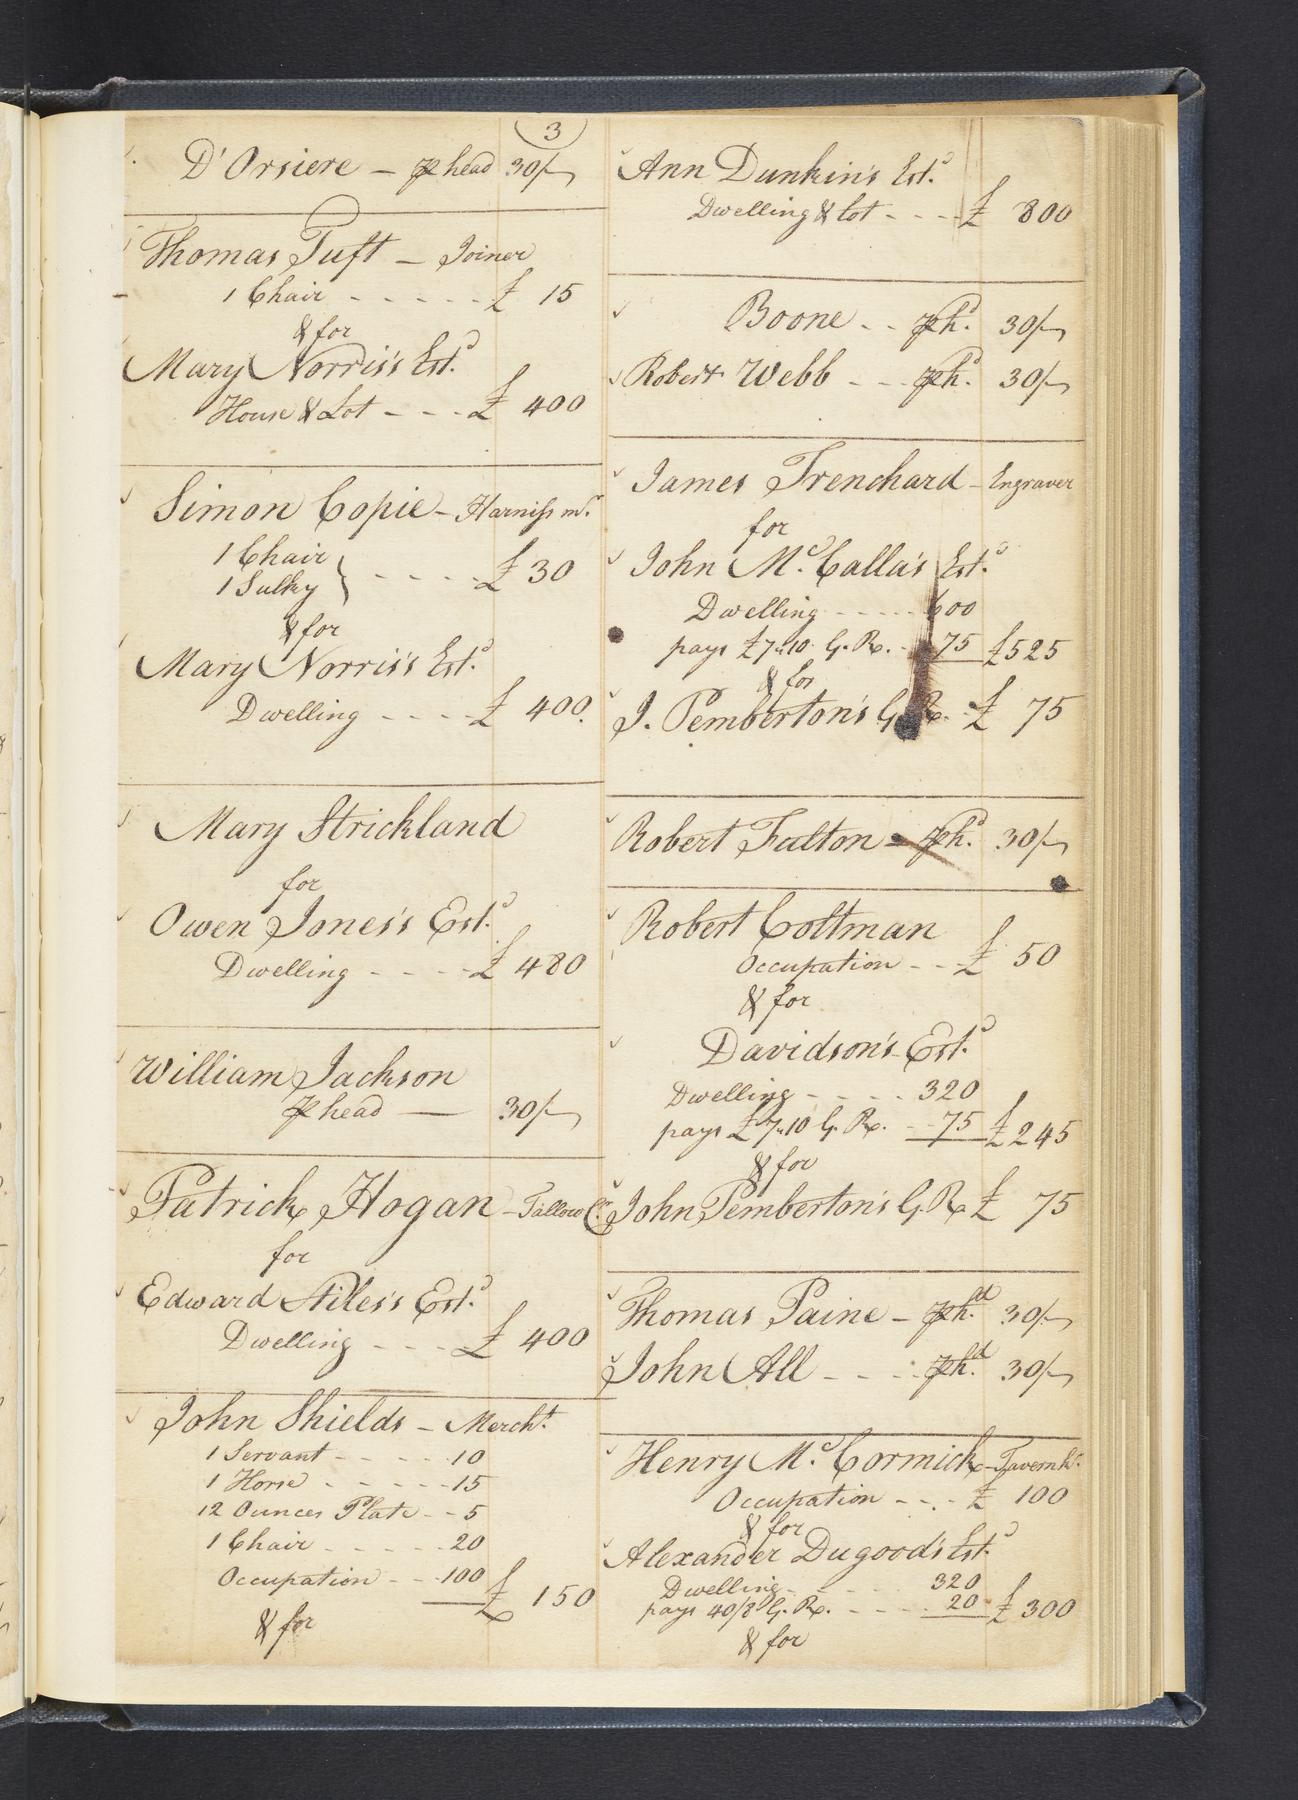 3
D'Orsiere - ⅌ head 30/-
Thomas Tuft - Joiner
1 Chair - - - - - £ 15
& for
Mary Norris's Estd.
House & Lot - - - £ 400
Simon Copie - Harness mr.
1 Chair
1 Sulky } - - - - £ 30
& for
Mary Norris's Estd.
Dwelling - - - - £ 400.
Mary Strickland
for
Owen Jones's Estd.
Dwelling - - - - £ 480
William Jackson
⅌ head — 30/-
Patrick Hogan - Tallow Cr.
for
Edward Stiles's Estd.
Dwelling - - - £ 400
John Shields - Mercht.
1 Servant - - - - - 10
1 Horse - - - - - 15
12 Ounces Plate - - 5
1 Chair - - - - - 20
Occupation - - - 100 £ 150
& for
Ann Dunkin's Estd.
Dwelling & Lot - - - - £ 800
Boone - - ⅌ hd. 30/-
Robert Webb - - - ⅌ hd. 30/-
James Trenchard - Engraver
for
John Mc. Calla's Estd.
Dwelling - - - - - 600
pays £7"10 G. R. - - 75 £525
& for
J. Pemberton's G R. - £ 75
Robert Fulton - ⅌ hd. 30/-
Robert Coltman
Occupation - - - £ 50
& for
Davidson's Estd.
Dwelling - - - - 320
pays £7"10 G. R. - - 75 £245
& for
John Pemberton's G. R £ 75
Thomas Paine - ⅌ hd. 30/-
John All - - - - ⅌ hd. 30/-
Henry Mc. Cormick - Tavernkr.
Occupation - - - - £ 100
& for
Alexander Dugood's Estd.
Dwelling - - - - 320
pays 40/8 G. R. - - - - 20 £ 300
& for